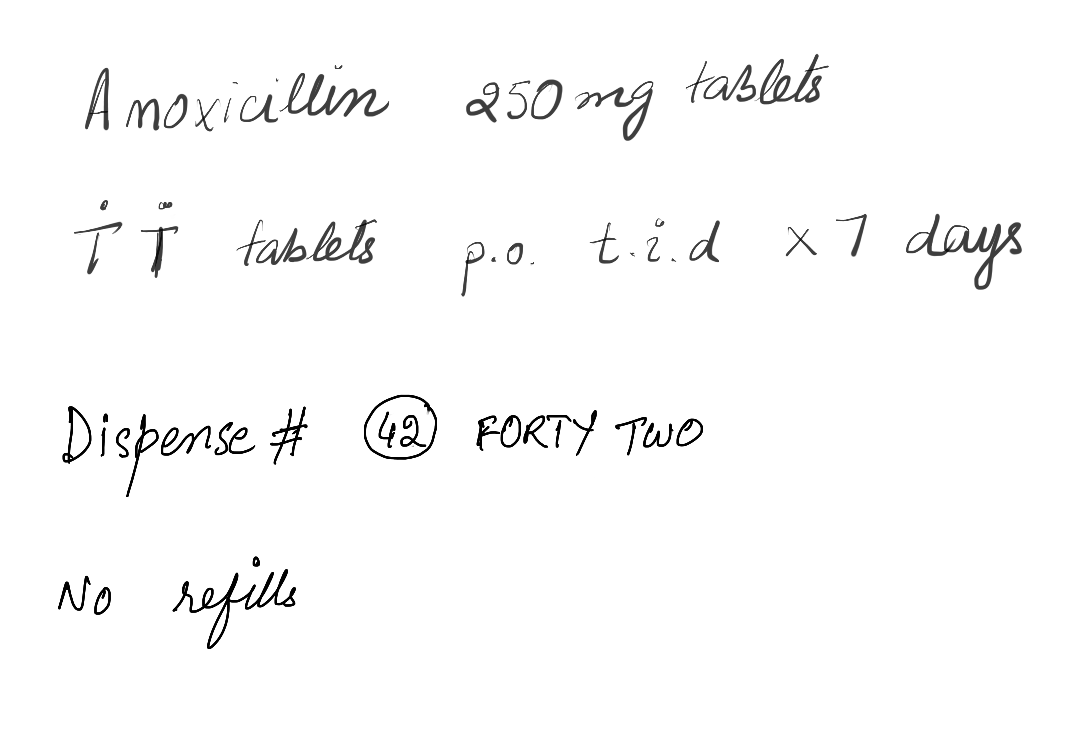 Amoxicillin 250 mg tablets
i̇ i̇ tablets p.o. t.i.d x 7 days
Dispense # 42 FORTY TWO
No refills